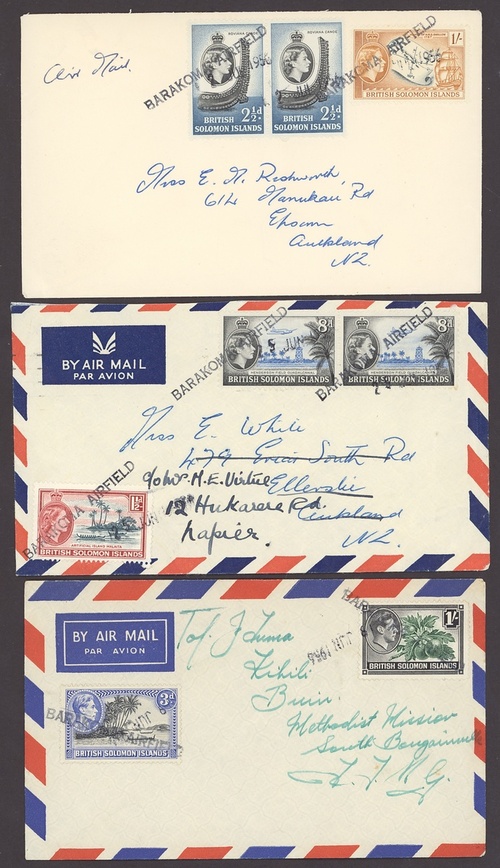 Air Mail.
BARAKOMA AIRFIELD
JUN 1956
ROVIANA CANOE
BRITISH
SOLOMON ISLANDS
2½d
ROVIANA CANOE
BRITISH
SOLOMON ISLANDS
2½d
BARAKOMA AIRFIELD
JUN 1956
1/-
BRITISH SOLOMON ISLANDS
Miss E. N. Rushworth
614 Manukau Rd
Epsom
Auckland
N.Z.
BY AIR MAIL
PAR AVION
BARAKOMA AIRFIELD
JUN
8d
HENDERSON FIELD GUADALCANAL
BRITISH SOLOMON ISLANDS
BARAKOMA AIRFIELD
8d
HENDERSON FIELD GUADALCANAL
BRITISH SOLOMON ISLANDS
Miss E White
479 Great South Rd
c/o Mr. M.E. Virtue
Ellerslie
12 Hukarere Rd.
Auckland
Napier.
N.Z.
BARAKOMA AIRFIELD
JUN
1½d
ARTIFICIAL ISLAND MALAITA
BRITISH SOLOMON ISLANDS
BY AIR MAIL
PAR AVION
BARAK
JUN 1956
1/-
BRITISH SOLOMON ISLANDS
Kihili
Buin
Methodist Mission
South Bougainville
T.P.N.G.
3d
BRITISH SOLOMON ISLANDS
BARAKOMA AIRFIELD
JUN